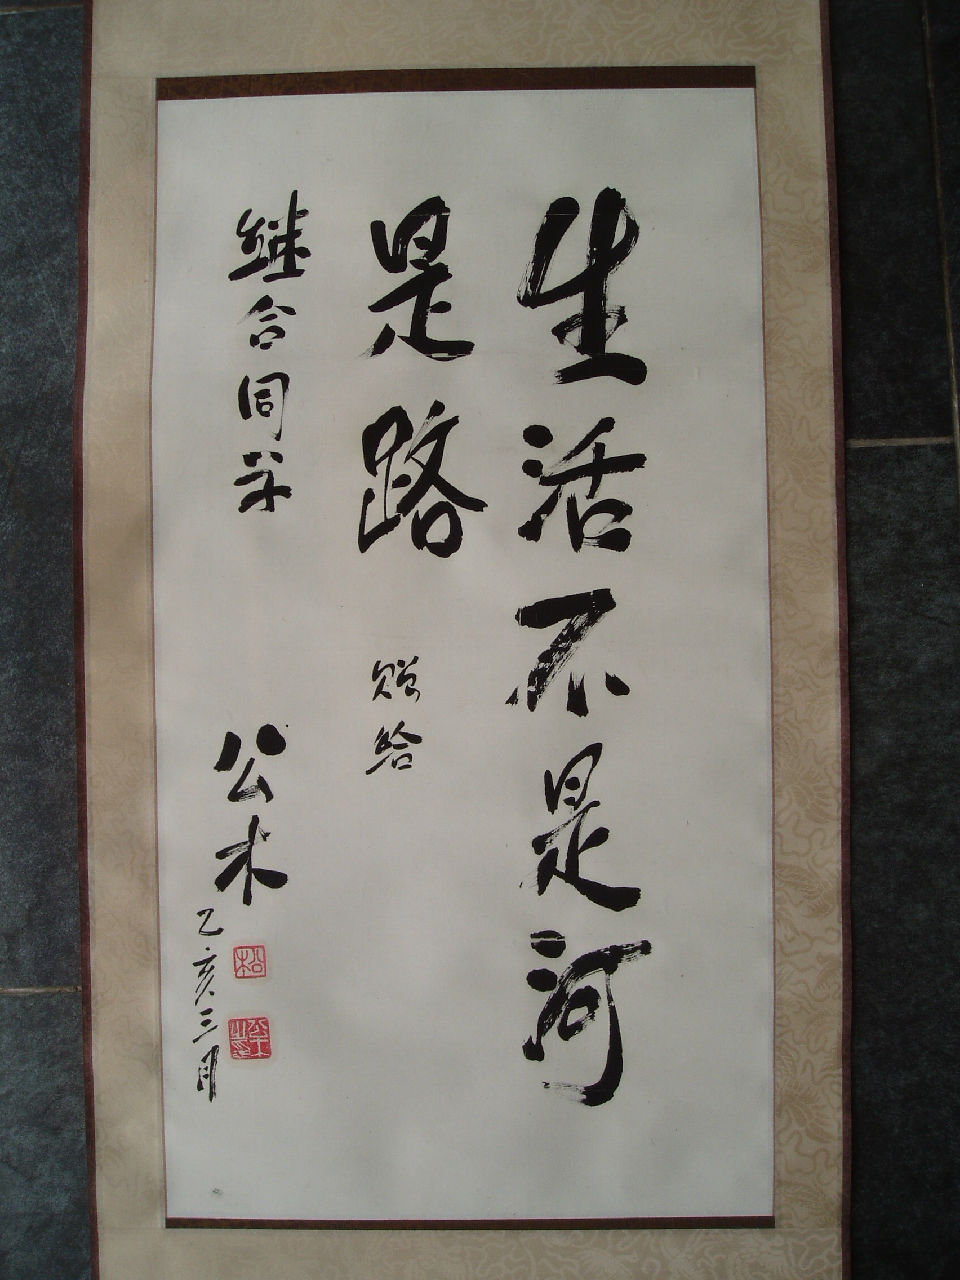 生活不是河
是路
赠给
继合同学
公木
乙亥三月